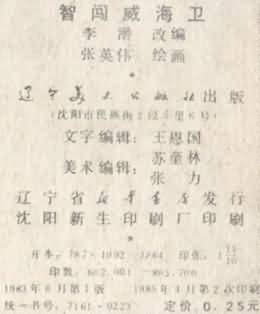 智闯威海卫
李 潜 改编
张英伟 绘画
辽宁美术出版社出版
(沈阳市民族街2段 里6号)
文字编辑: 王恩国
美术编辑: 苏奎林
张 力
辽宁省新华书店发行
沈阳新生印刷厂印刷
开本: 787×1092 1/64 印张: 1
印数:
1983年6月第1版 1985年4月第2次印刷
统一书号: 7161·0223 定价 0.25元